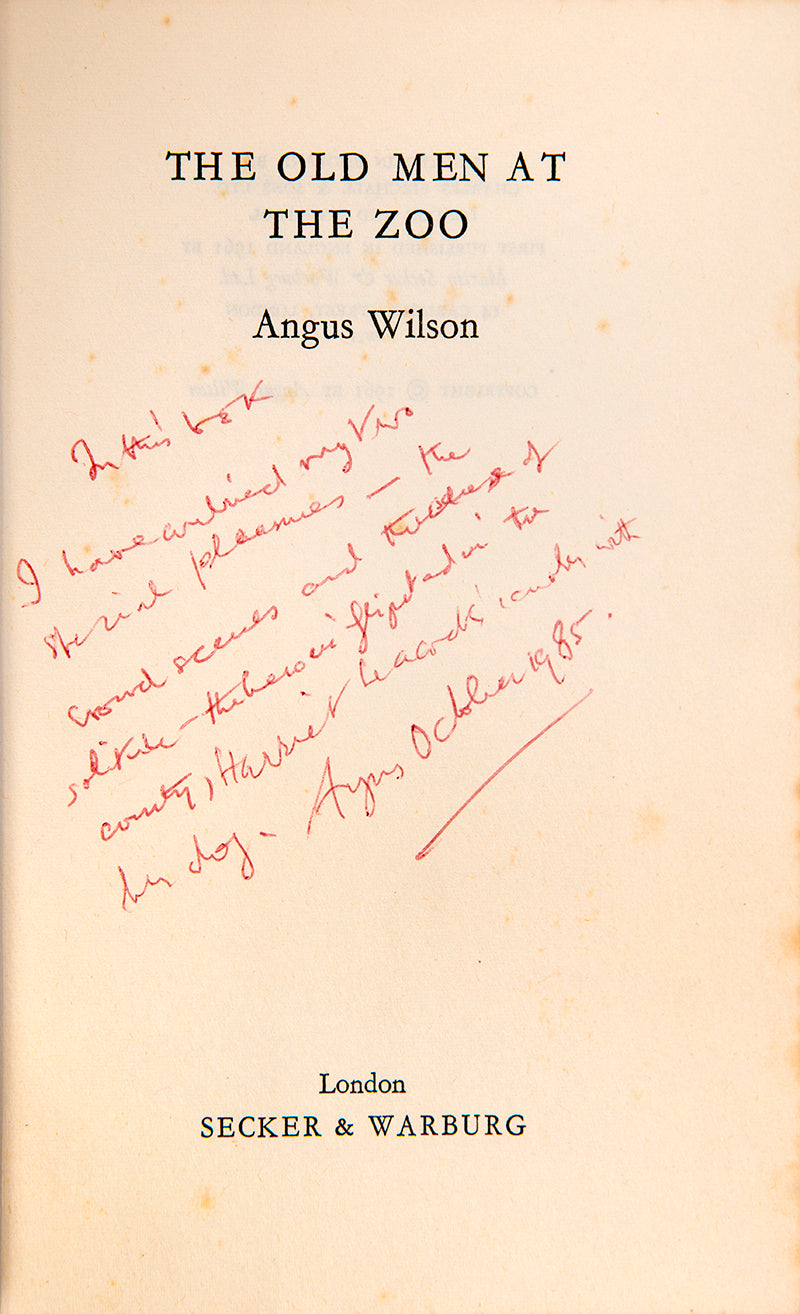 THE OLD MEN AT
THE ZOO
Angus Wilson
In this book
I have combined my two
special pleasures — the
crowd scenes and the of
solitude — the hero in the
county, Harriet Leacock's with
her dog. Angus October 1985.
London
SECKER & WARBURG